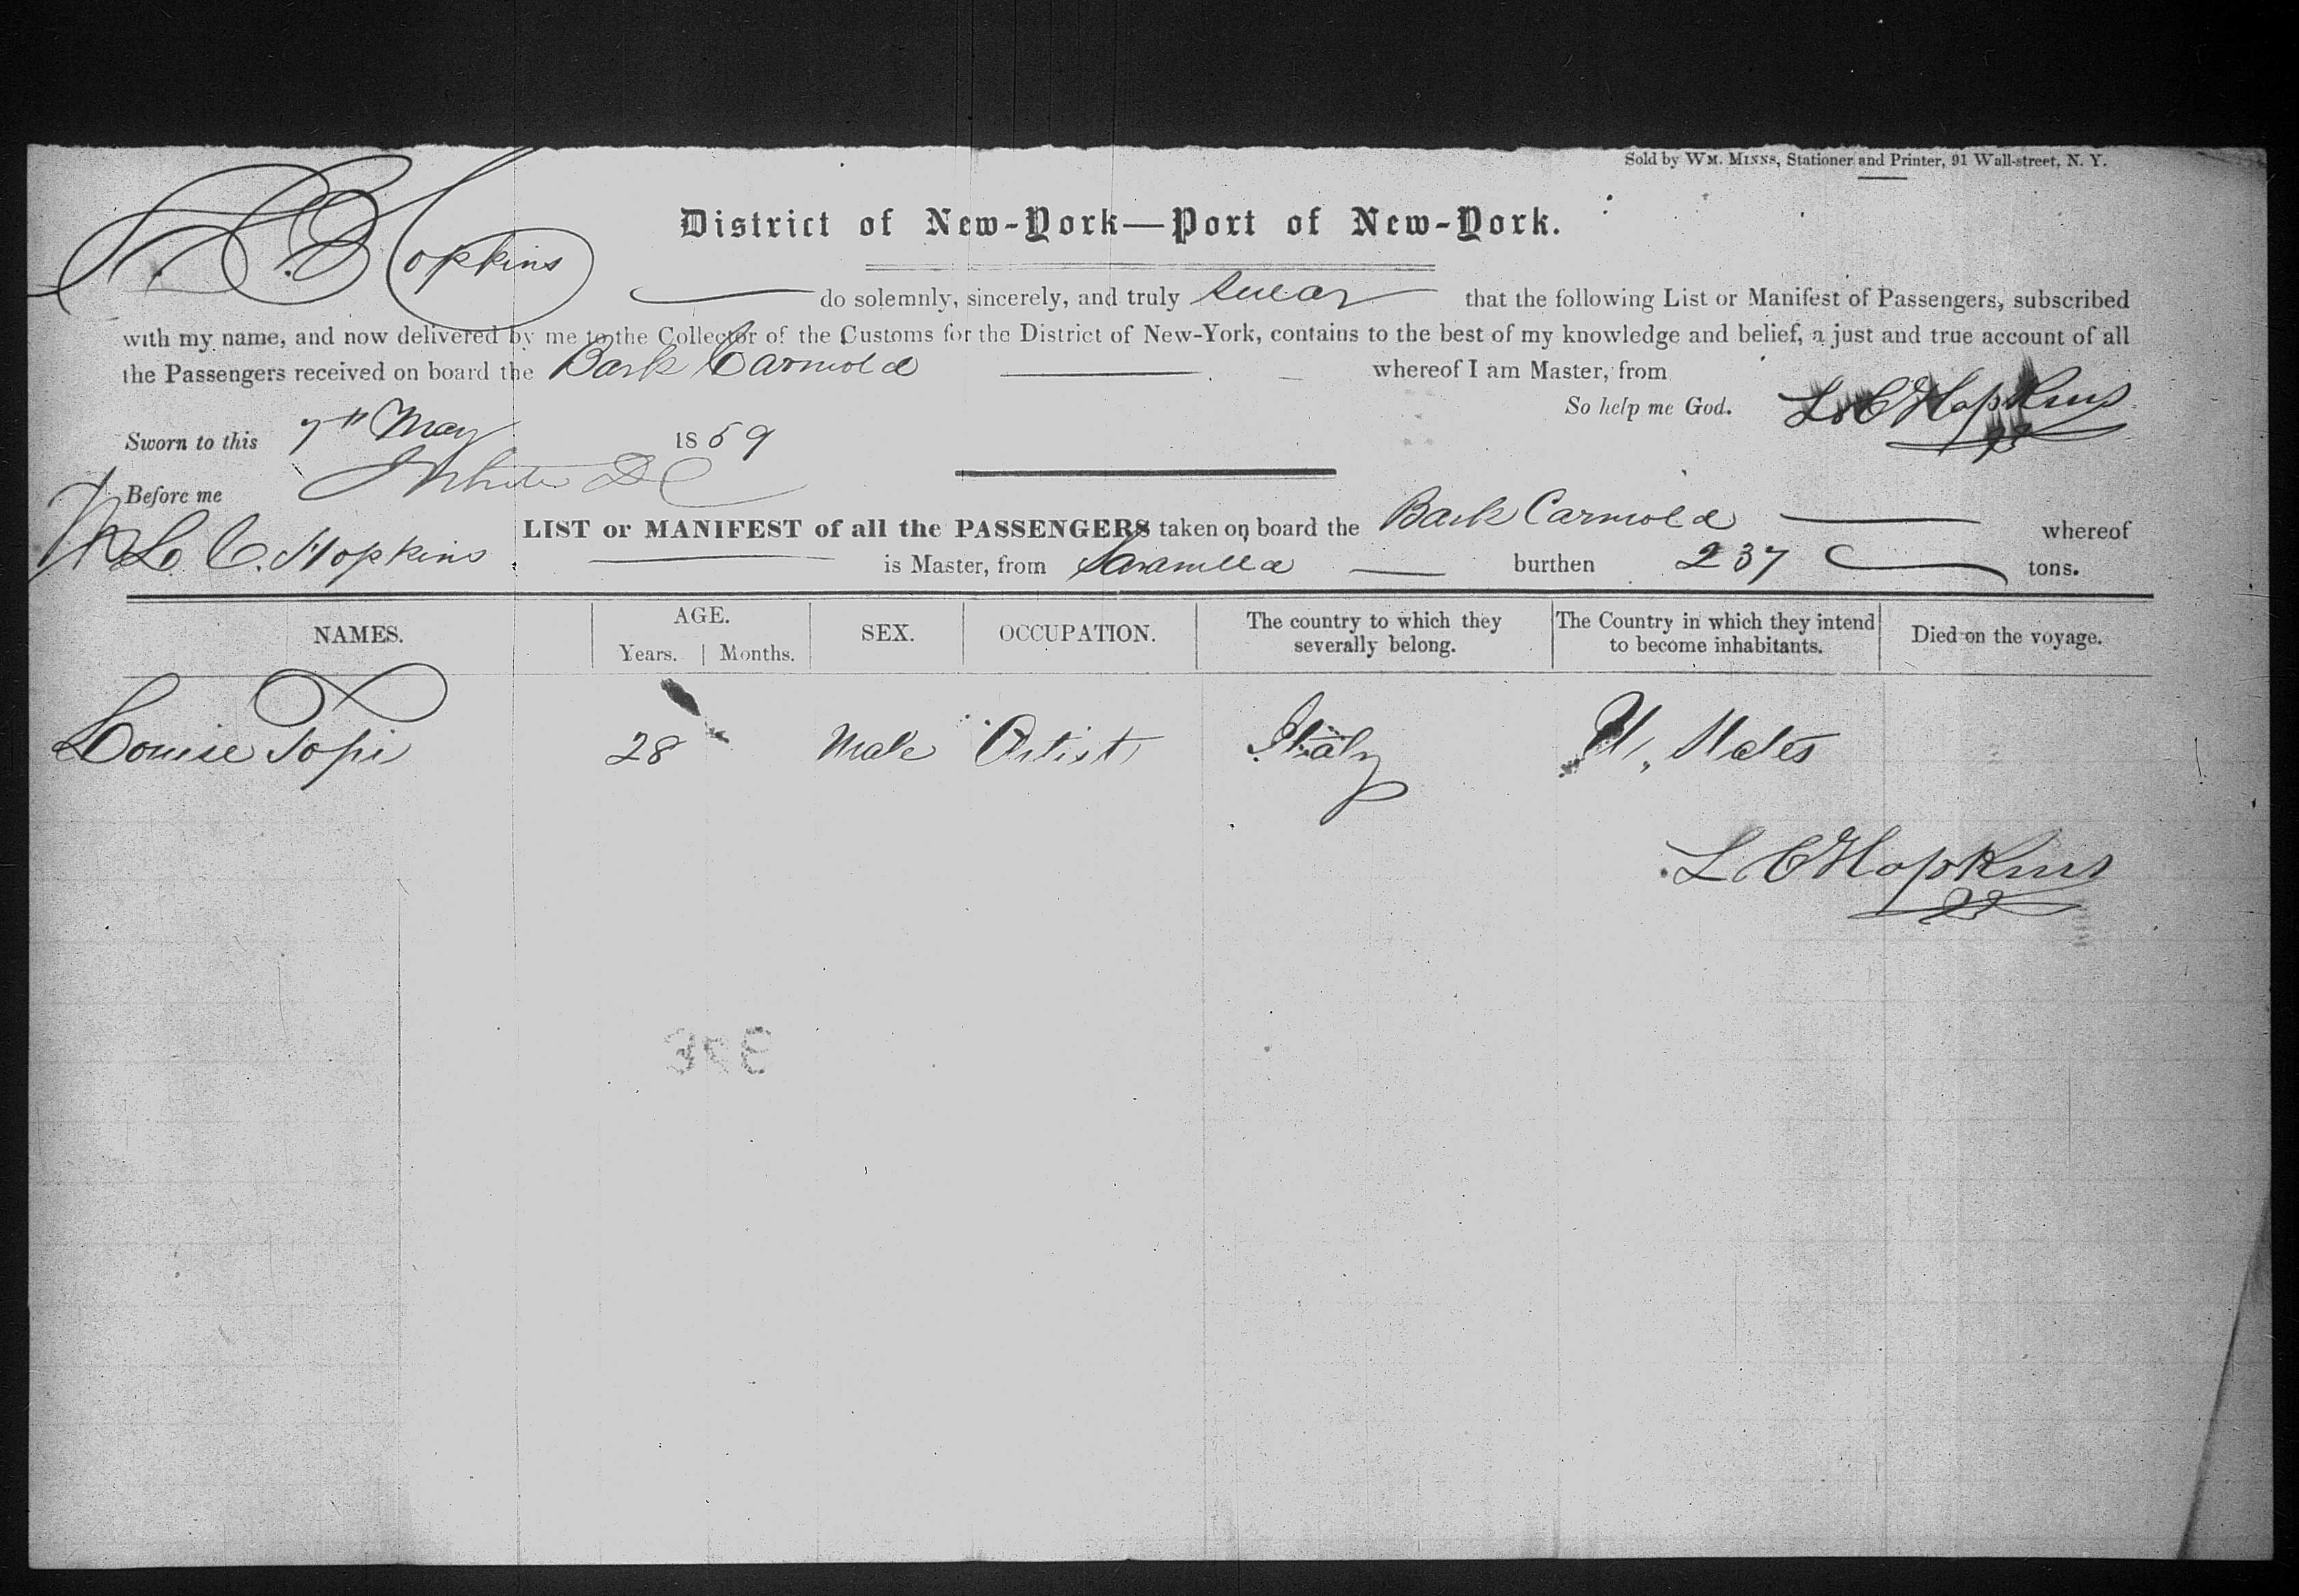 Sold by WM. MINNS, Stationer and Printer, 91 Wall-street, N. Y.
District of New-York—Port of New-York.
Hopkins do solemnly, sincerely, and truly swear that the following List or Manifest of Passengers, subscribed
with my name, and now delivered by me to the Collector of the Customs for the District of New-York, contains to the best of my knowledge and belief, a just and true account of all
the Passengers received on board the Bark Carmola whereof I am Master, from
So help me God. L C Hopkins
Sworn to this 7th May 1859
Before me
L. C. Hopkins LIST or MANIFEST of all the PASSENGERS taken on board the Bark Carmola whereof
is Master, from burthen 237 tons.
NAMES. AGE. Years. Months. SEX. OCCUPATION. The country to which they severally belong. The Country in which they intend to become inhabitants. Died on the voyage.
Louise Topi 28 Male Artist Italy U. States
L C Hopkins